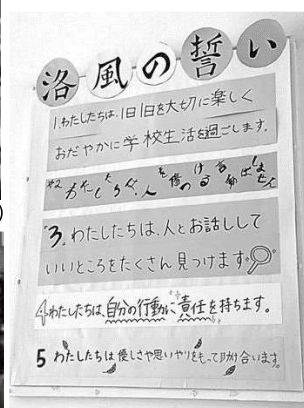 洛風の誓い
1.わたしたちは、1日1日を大切に楽しく
おだやかに学校生活を過ごします。
2 わたしたちは、人を傷つける言動をしません
3.わたしたちは、人とお話しして
いいところをたくさん見つけます
4 わたしたちは、自分の行動に責任を持ちます。
5 わたしたちは優しさや思いやりをもって助け合います。